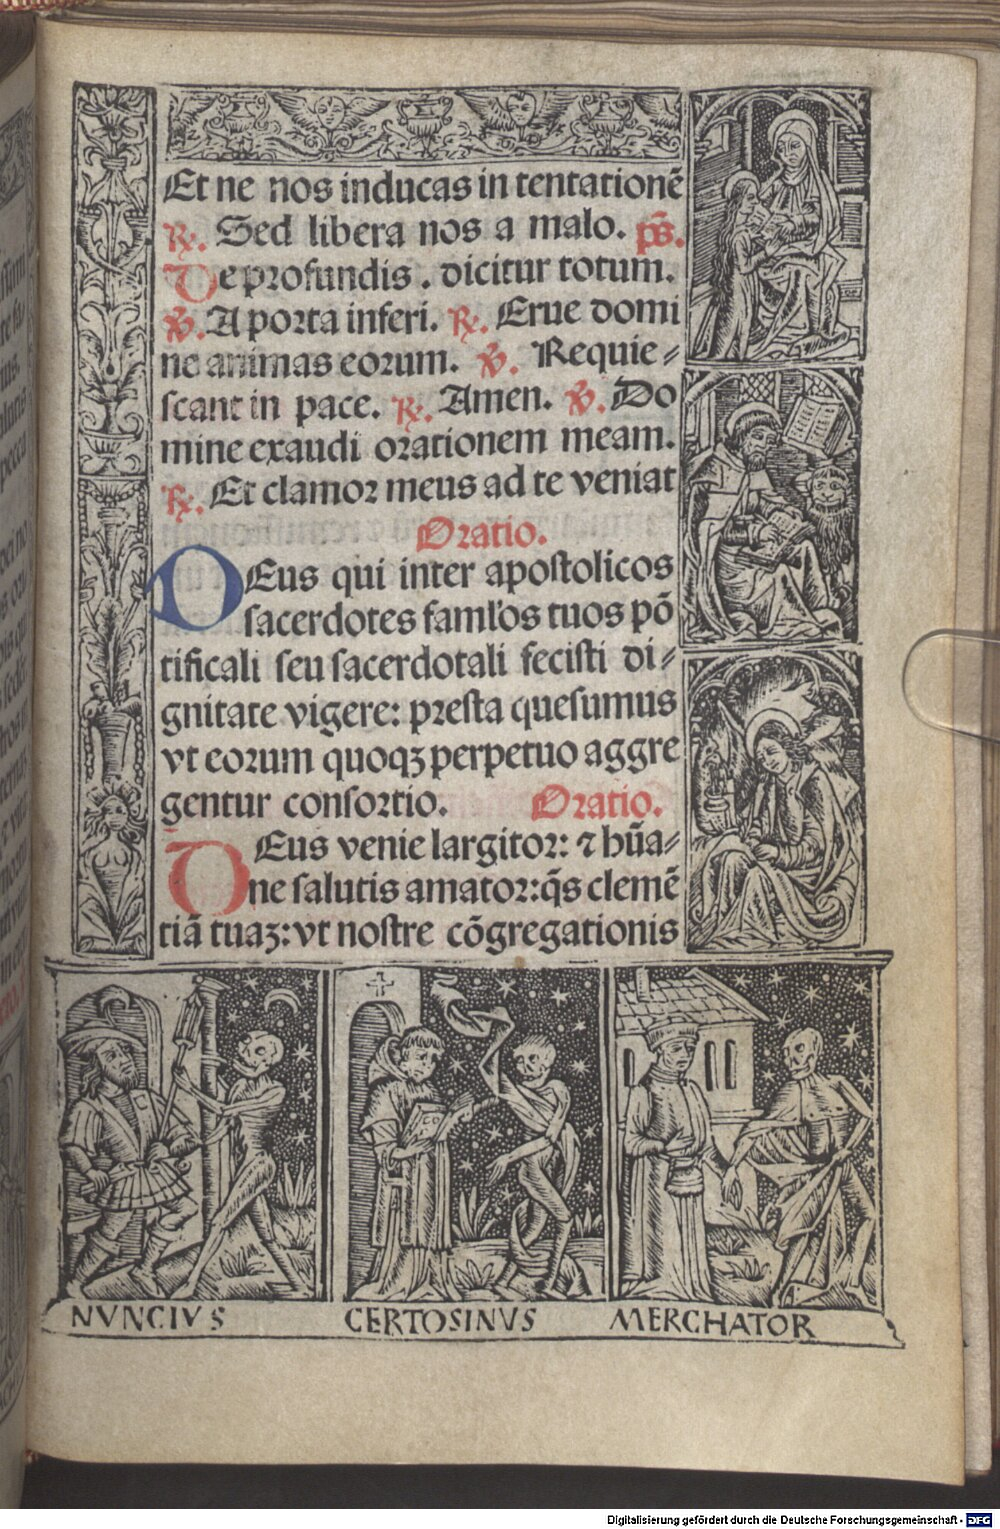 Et ne nos inducas in tentationē
℟. Sed libera nos a malo. p̄s.
De profundis. dicitur totum.
℣. A porta inferi. ℟. Erue domi
ne animas eorum. ℣. Requie⸗
scant in pace. ℟. Amen. ℣. Do
mine exaudi orationem meam.
℟. Et clamor meus ad te veniat
Oratio.
DEus qui inter apostolicos
sacerdotes faml'os tuos pō
tificali seu sacerdotali fecisti di⸗
gnitate vigere: presta quesumus
vt eorum quoqꝫ perpetuo aggre
gentur consortio. Oratio.
DEus venie largitor: ⁊ hūa⸗
ne salutis amator: q̄s clemē
tiā tuaꝫ: vt nostre cōgregationis
NVNCIVS CERTOSINVS MERCHATOR
Digitalisierung gefördert durch die Deutsche Forschungsgemeinschaft - DFG